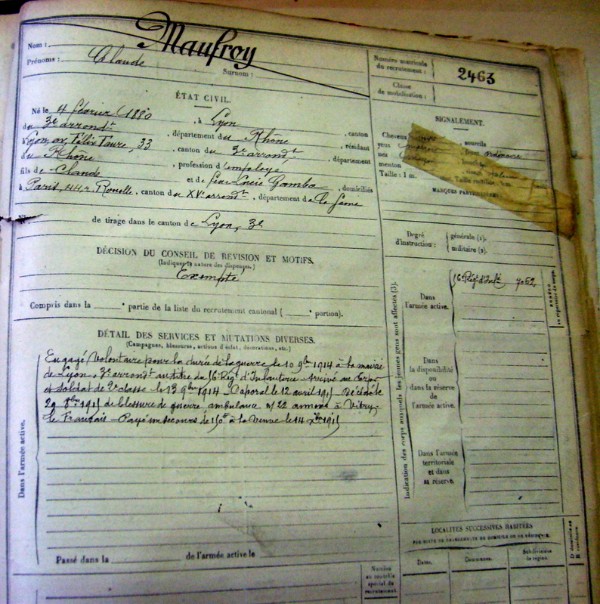 Maufroy
Nom :
Prénoms : Claude
Surnom :
Numéro matricule
du recrutement : 2463
Classe
de mobilisation :
ÉTAT CIVIL.
Né le 4 février 1880, à Lyon
3e arrondt, département du Rhône, canton
Lyon, av. Félix Faure, 33, canton du 3e arrondt, résidant
du Rhône, profession d'employé, département
fils de Claude et de Lucie Gamba, domiciliés
à Paris, 44 r., canton de XVe arrondt, département de la Seine
N° de tirage dans le canton de Lyon, 3e
DÉCISION DU CONSEIL DE RÉVISION ET MOTIFS.
(Indiquer la nature des dispenses.)
Exempté
Compris dans la e partie de la liste du recrutement cantonal ( e portion).
DÉTAIL DES SERVICES ET MUTATIONS DIVERSES.
(Campagnes, blessures, actions d'éclat, décorations, etc.)
Engagé Volontaire pour la durée de la guerre le 10 9bre 1914 à la mairie
de Lyon, 3e arrondt au titre du 16e Régt d'Infanterie. Arrivé au Corps
et soldat de 2e classe le 13 9bre 1914. Caporal le 12 avril 1915. Décédé le
29 8bre 1915 de blessure de guerre ambulance à Vitry
le Français. Payé un secours de 150f à la veuve le 14 Xbre 1915
Dans l'armée active.
Passé dans la
de l'armée active le
SIGNALEMENT.
Cheveux
sourcils
yeux
menton
Taille : 1 m.
MARQUES PARTICULIÈRES
Degré
d'instruction :
générale (1).
militaire (2).
Indication des corps auxquels les jeunes gens sont affectés (3).
Dans
l'armée
active.
16 Régt d'Infie
Dans
la disponibilité
ou
dans la réserve
de
l'armée active.
Dans l'armée
territoriale
et dans
sa réserve.
LOCALITÉS SUCCESSIVES HABITÉES
Dates.
Communes.
Subdivisions
de région.
Numéro
au contrôle
spécial du
recrutement.